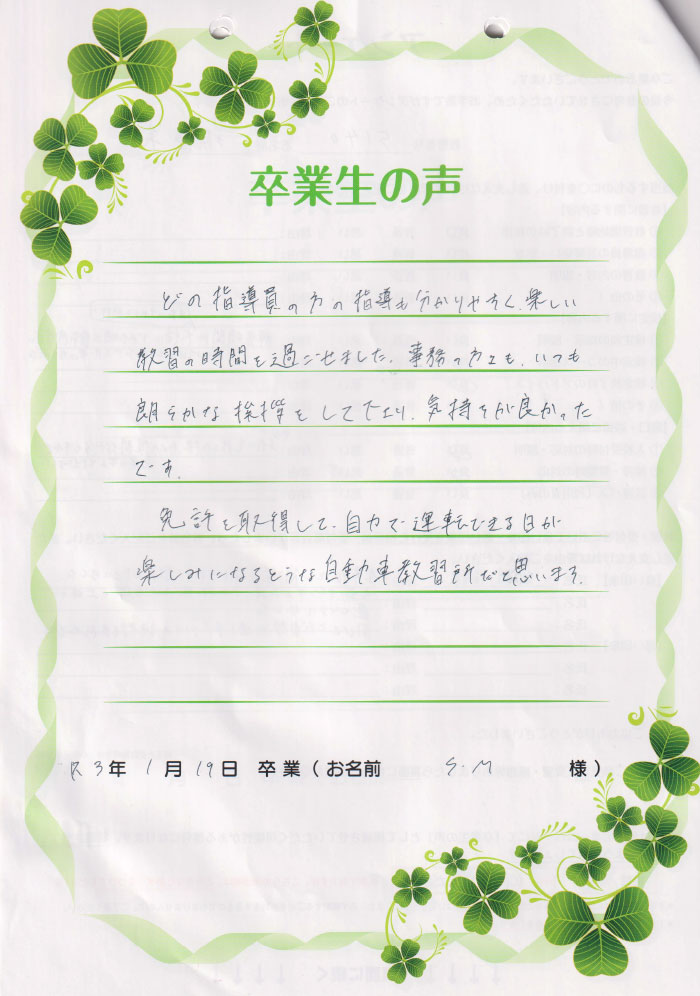 卒業生の声
どの指導員の方の指導も分かりやすく、楽しい
教習の時間を過ごせました。事務の方々も、いつも
朗らかな挨拶をして下さり、気持ちが良かった
です。
免許を取得して、自力で運転できる日が
楽しみになるような自動車教習所だと思います。
R3年 1月 19日 卒業（お名前 S.M 様）